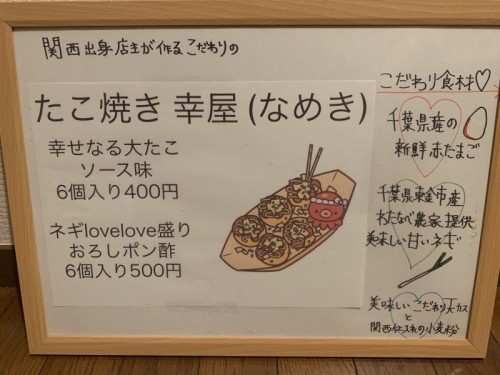 関西出身店主が作るこだわりの
たこ焼き 幸屋 (なめき)
幸せなる大たこ
ソース味
6個入り400円
ネギlovelove盛り
おろしポン酢
6個入り500円
こだわり食材♡
千葉県産の
新鮮赤たまご
千葉県東金市産
わたなべ農家提供
美味しい甘いネギ
美味しいこだわり天カス
と
関西仕入れの小麦粉